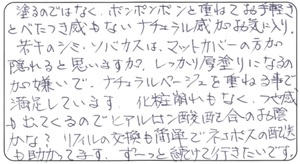 塗るのではなく、ポンポンポンと重ねてお手軽さ
とべたつき感もないナチュラル感がお気に入り。
若干のシミ・ソバカスは、マットカバーの方が
隠れると思いますが、しっかり厚塗りになるの
が嫌いで、ナチュラルベージュを重ねる事で
満足しています。化粧崩れもなく、つや感
も出てくるのでヒアルロン酸配合のお陰
かな？リフィルの交換も簡単でネコポスの配送
も助かってます。ずーっと続けて行きたいです。